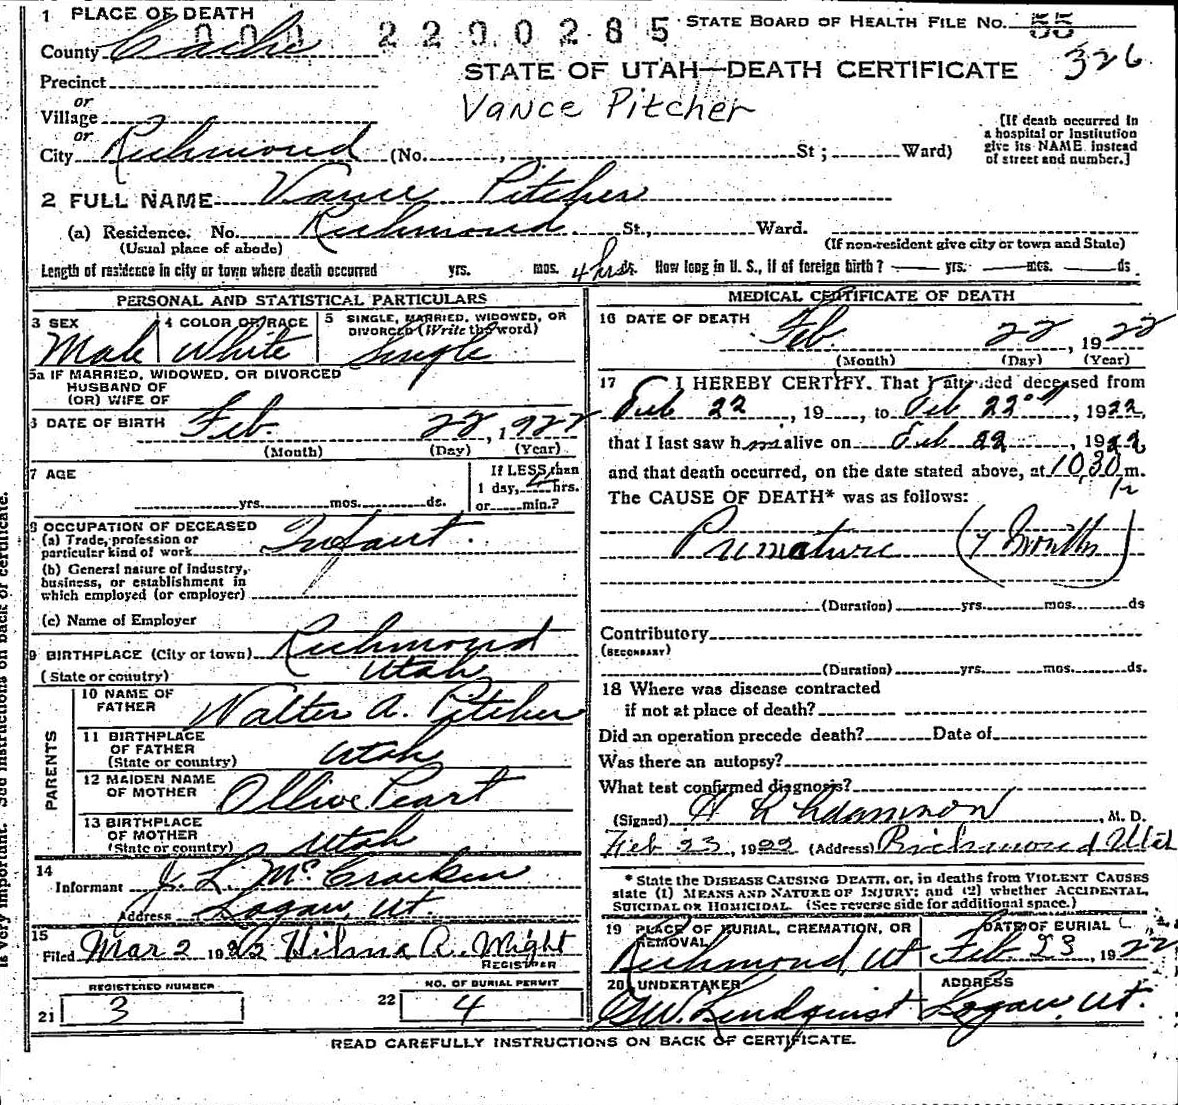 1 PLACE OF DEATH
0002200285
STATE BOARD OF HEALTH FILE No. 55
County Cache
326
STATE OF UTAH—DEATH CERTIFICATE
Precinct
or
Village
Vance Pitcher
or
City Richmond (No. , St ; Ward)
[If death occurred in
a hospital or institution
give its NAME instead
of street and number.]
2 FULL NAME Vance Pitcher
(a) Residence. No. Richmond St., Ward.
(Usual place of abode) (If non-resident give city or town and State)
Length of residence in city or town where death occurred yrs. mos. 4 hrs ds. How long in U. S., if of foreign birth? yrs. mos. ds
PERSONAL AND STATISTICAL PARTICULARS
3 SEX 4 COLOR OR RACE 5 SINGLE, MARRIED, WIDOWED, OR
DIVORCED (Write the word)
Male White Single
5a IF MARRIED, WIDOWED, OR DIVORCED
HUSBAND OF
(OR) WIFE OF
6 DATE OF BIRTH Feb. 22, 1922
(Month) (Day) (Year)
7 AGE If LESS than
1 day, 4 hrs.
yrs. mos. ds. or min.?
8 OCCUPATION OF DECEASED
(a) Trade, profession or
particular kind of work Infant.
(b) General nature of industry,
business, or establishment in
which employed (or employer)
(c) Name of Employer
9 BIRTHPLACE (City or town) Richmond
(State or country) Utah
PARENTS
10 NAME OF
FATHER Walter A. Pitcher
11 BIRTHPLACE
OF FATHER
(State or country) Utah
12 MAIDEN NAME
OF MOTHER Ollive Peart
13 BIRTHPLACE
OF MOTHER
(State or country) Utah
14
Informant J. L. McCracken
Address Logan, Ut.
15
Filed Mar 2 1922 Hilma R. Wright
REGISTRAR
REGISTERED NUMBER
21 3
NO. OF BURIAL PERMIT
22 4
MEDICAL CERTIFICATE OF DEATH
16 DATE OF DEATH Feb. 22, 1922
(Month) (Day) (Year)
17 I HEREBY CERTIFY. That I attended deceased from
Feb 22, 19 , to Feb 22nd, 1922,
that I last saw him alive on Feb 22, 1922
and that death occurred, on the date stated above, at 10,30 m.
The CAUSE OF DEATH* was as follows:
Premature (7 Months)
(Duration) yrs. mos. ds
Contributory
(SECONDARY)
(Duration) yrs. mos. ds.
18 Where was disease contracted
if not at place of death?
Did an operation precede death? Date of
Was there an autopsy?
What test confirmed diagnosis?
(Signed) , M. D.
Feb 23, 1922 (Address) Richmond Utah
* State the DISEASE CAUSING DEATH, or, in deaths from VIOLENT CAUSES
state (1) MEANS AND NATURE OF INJURY; and (2) whether ACCIDENTAL,
SUICIDAL OR HOMICIDAL. (See reverse side for additional space.)
19 PLACE OF BURIAL, CREMATION, OR
REMOVAL
DATE OF BURIAL
Richmond, Ut Feb 23, 1922
20 UNDERTAKER ADDRESS
G.W. Lindquist Logan, Ut.
READ CAREFULLY INSTRUCTIONS ON BACK OF CERTIFICATE.
is very important. See instructions on back of certificate.